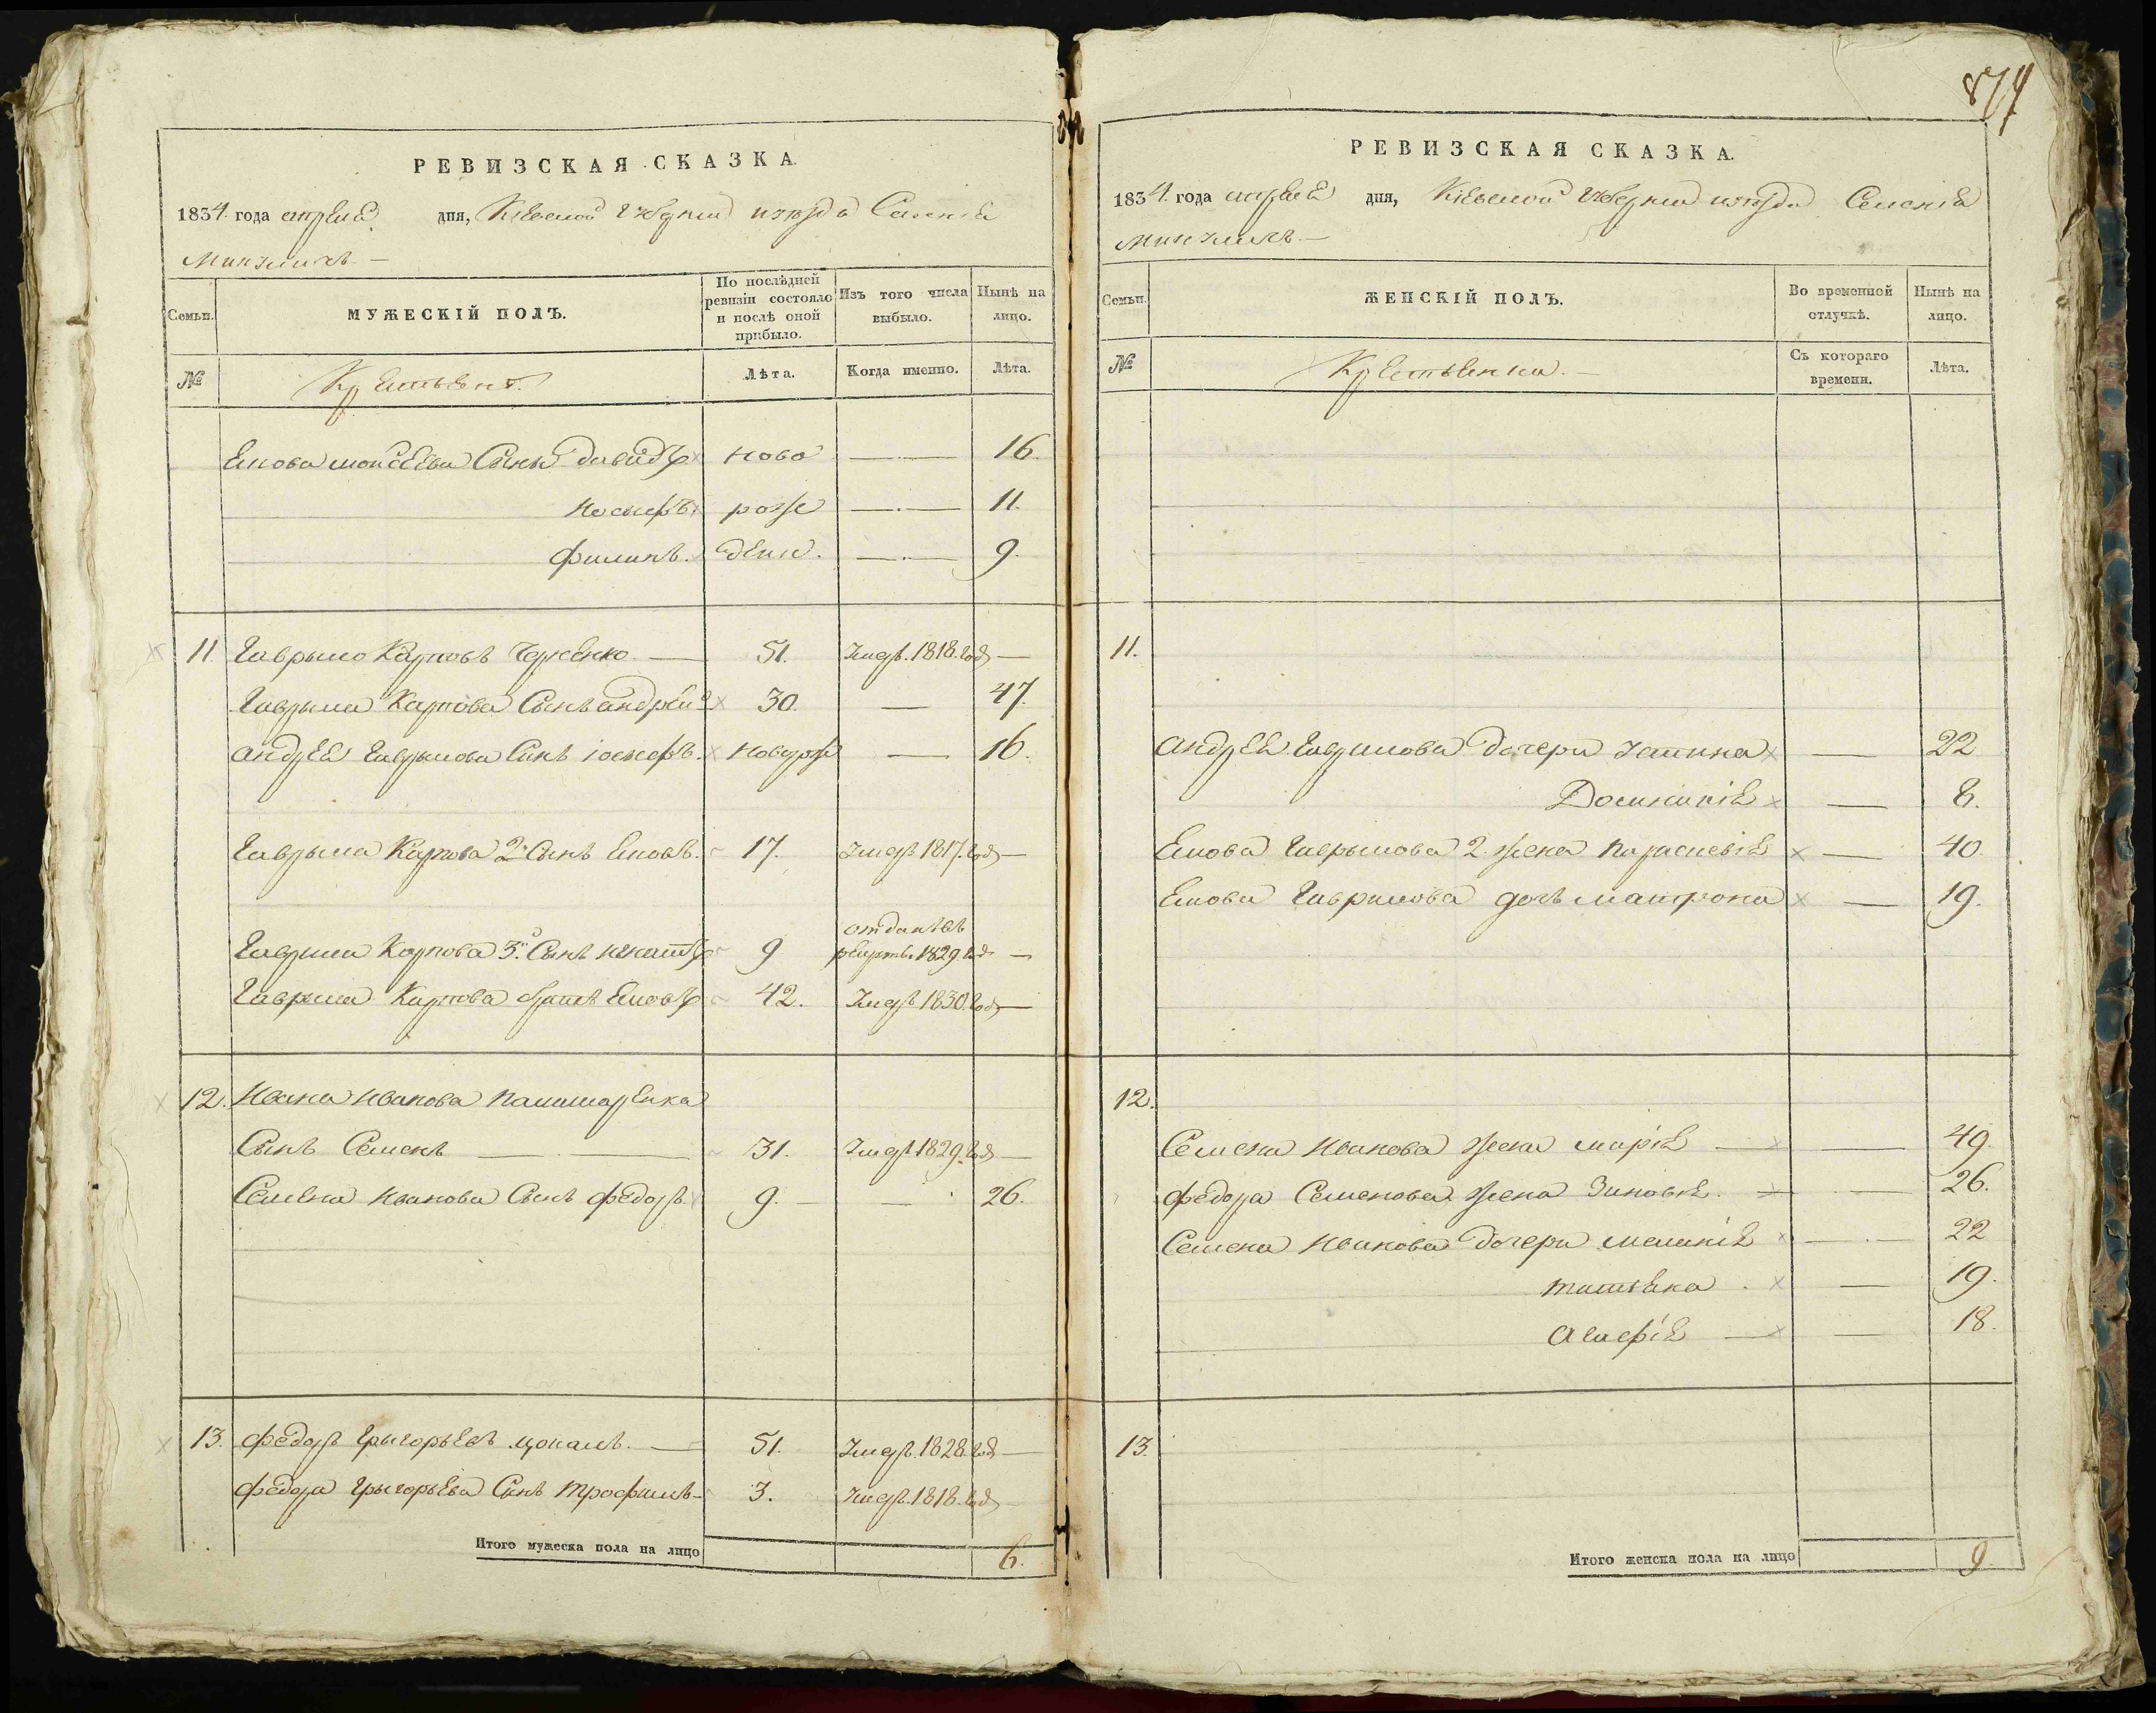 874
РЕВИЗСКАЯ СКАЗКА.
1834. года апреля дня, Кіевской губерніи уезда Селенія
МУЖЕСКІЙ ПОЛЪ.
Семьи.
По послѣдней ревизіи состояло и послѣ оной прибыло.
Изъ того числа выбыло.
Нынѣ на лицо.
№
Крестьяне.
Лѣта.
Когда именно.
Лѣта.
Екова Моисеева Сынъ Давидъ ново — 16.
Иосифъ рож — 11.
Филипъ. дени. — 9.
11. Гаврыло Карповъ — 51. Умеръ. 1818. год —
Гаврыла Карпова Сынъ андрей 30. — 47.
андрея Гаврылова Сынъ іосифъ. новорож — 16.
Гаврыла Карпова 2й Сынъ Ековъ. 17. Умеръ 1817. год —
отданъ въ
Гаврыла Карпова 3й Сынъ игнатъ 9 рекрты 1829. год —
Гаврыла Карпова братъ Ековъ 42. Умеръ 1830. год —
12. Ивана Иванова
Сынъ Семенъ — 31. Умеръ 1829. год —
Семена Иванова Сынъ федоръ. 9. — 26.
13. федоръ Грыгорьевъ — 51. Умеръ. 1828. год —
федора Грыгорьева Сынъ трофимъ — 3. Умеръ. 1818. год —
Итого мужеска пола на лицо 6.
РЕВИЗСКАЯ СКАЗКА.
1834. года апреля дня, Кіевской губерніи уезда Селенія
Семьи.
ЖЕНСКІЙ ПОЛЪ.
Во временной отлучкѣ.
Нынѣ на лицо.
№
Крестьянки. —
Съ котораго времени.
Лѣта.
11.
андрея Гаврилова дочери — 22
Домникія — 8.
Екова Гаврылова 2. жена Параскевія — 40.
Екова Гаврилова дочь матрона — 19.
12.
Семена Иванова жена марія — 49.
федора Семенова жена Зиновія. — 26.
Семена Иванова дочери меланія — 22
татьяна. — 19.
Агафія — 18.
13.
Итого женска пола на лицо 9.